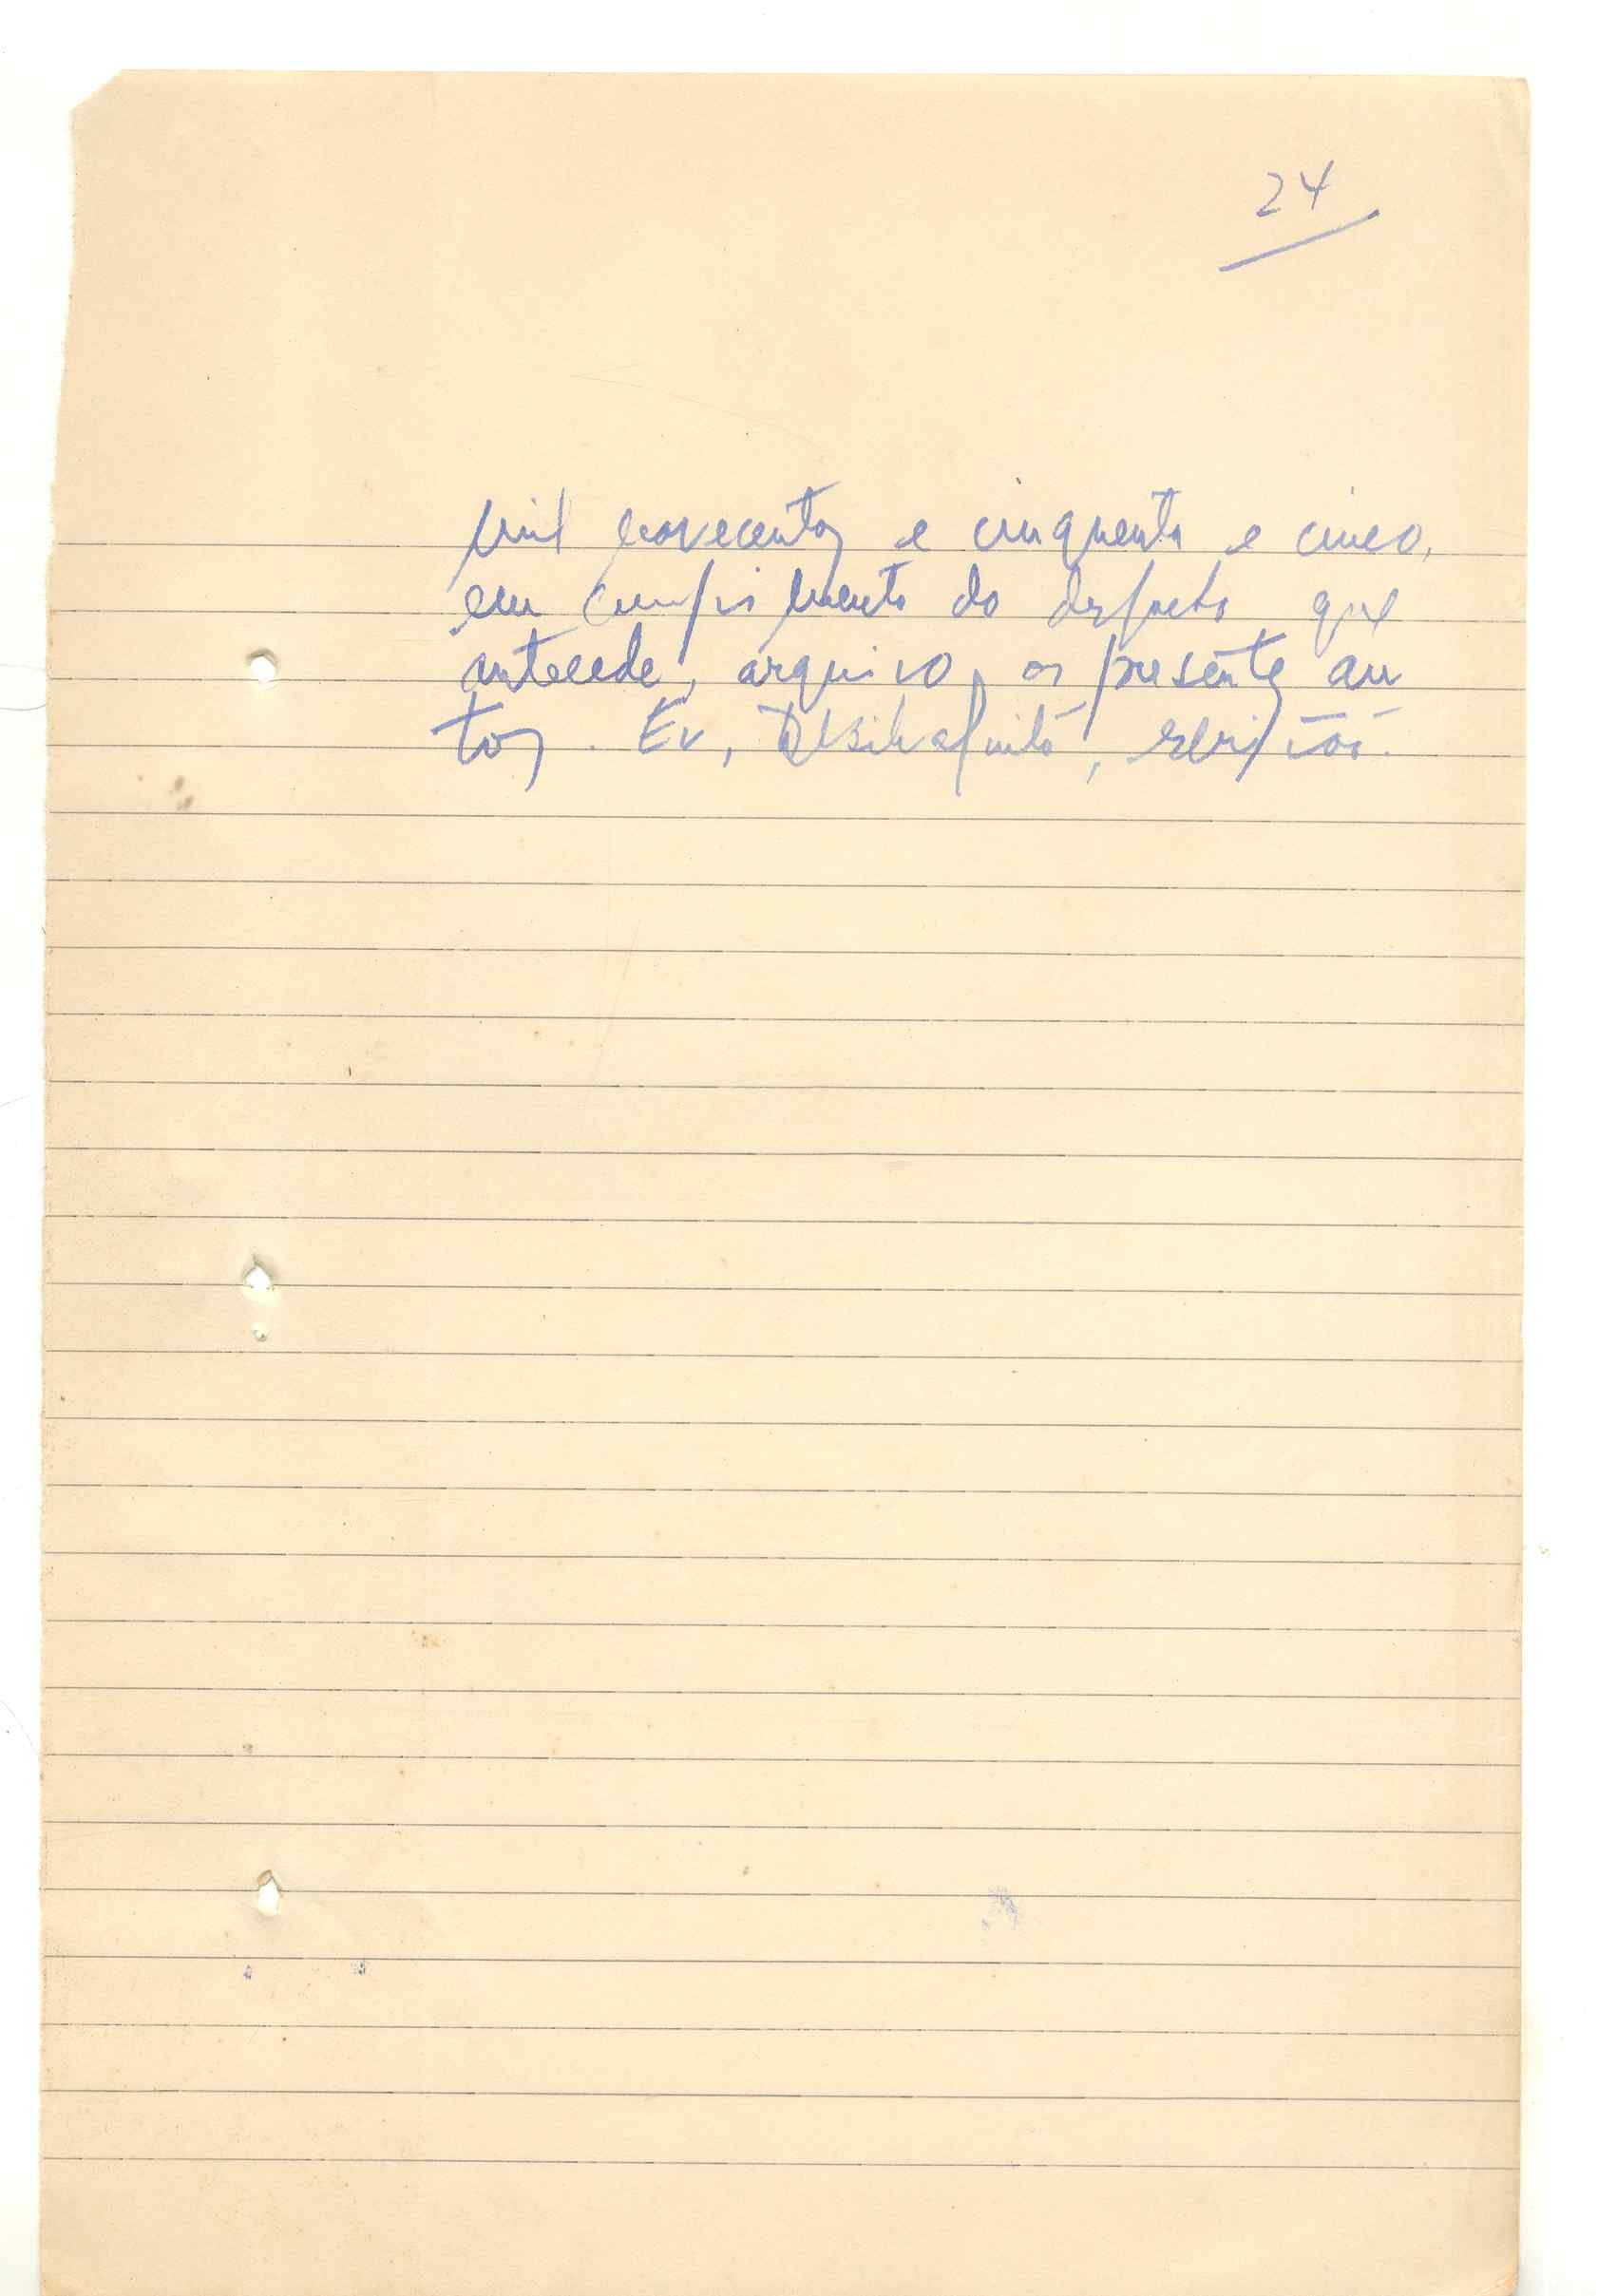 24
mil novecentos e cinquenta e cinco,
em cumprimento do despacho que
antecede, arquivo, os presentes au
tos. Eu, escrivão.